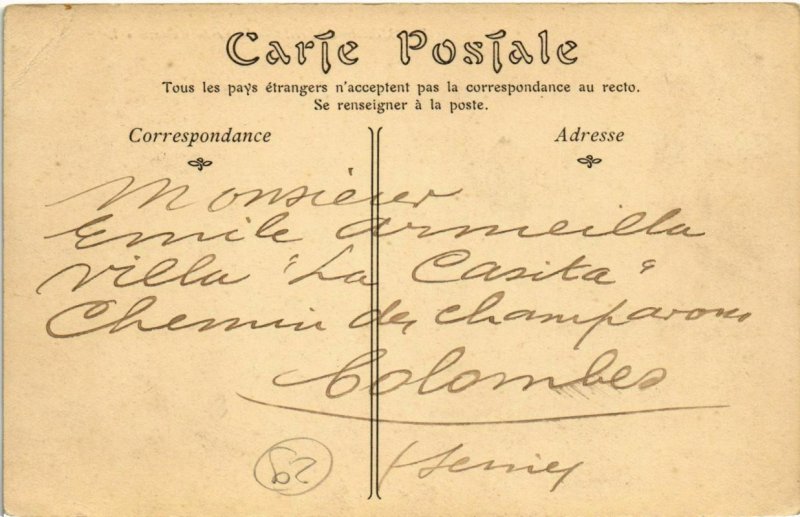 Carte Postale
Tous les pays étrangers n'acceptent pas la correspondance au recto.
Se renseigner à la poste.
Correspondance
Adresse
Monsieur
Emile Armeilla
Villa "La Casita"
Chemin des Champarons
Colombes
(Seine)